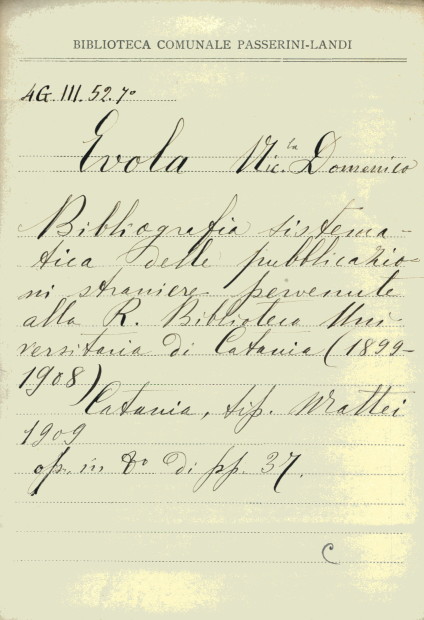 BIBLIOTECA COMUNALE PASSERINI-LANDI
4G. III. 52. 7º
Evola Nic.la Domenico
Bibliografia sistema-
tica delle pubblicazio-
ni straniere pervenute
alla R. Biblioteca Uni-
versitaria di Catania (1899-
1908)
Catania, tip. Mattei
1909
op. in 8º di pp. 37.
C